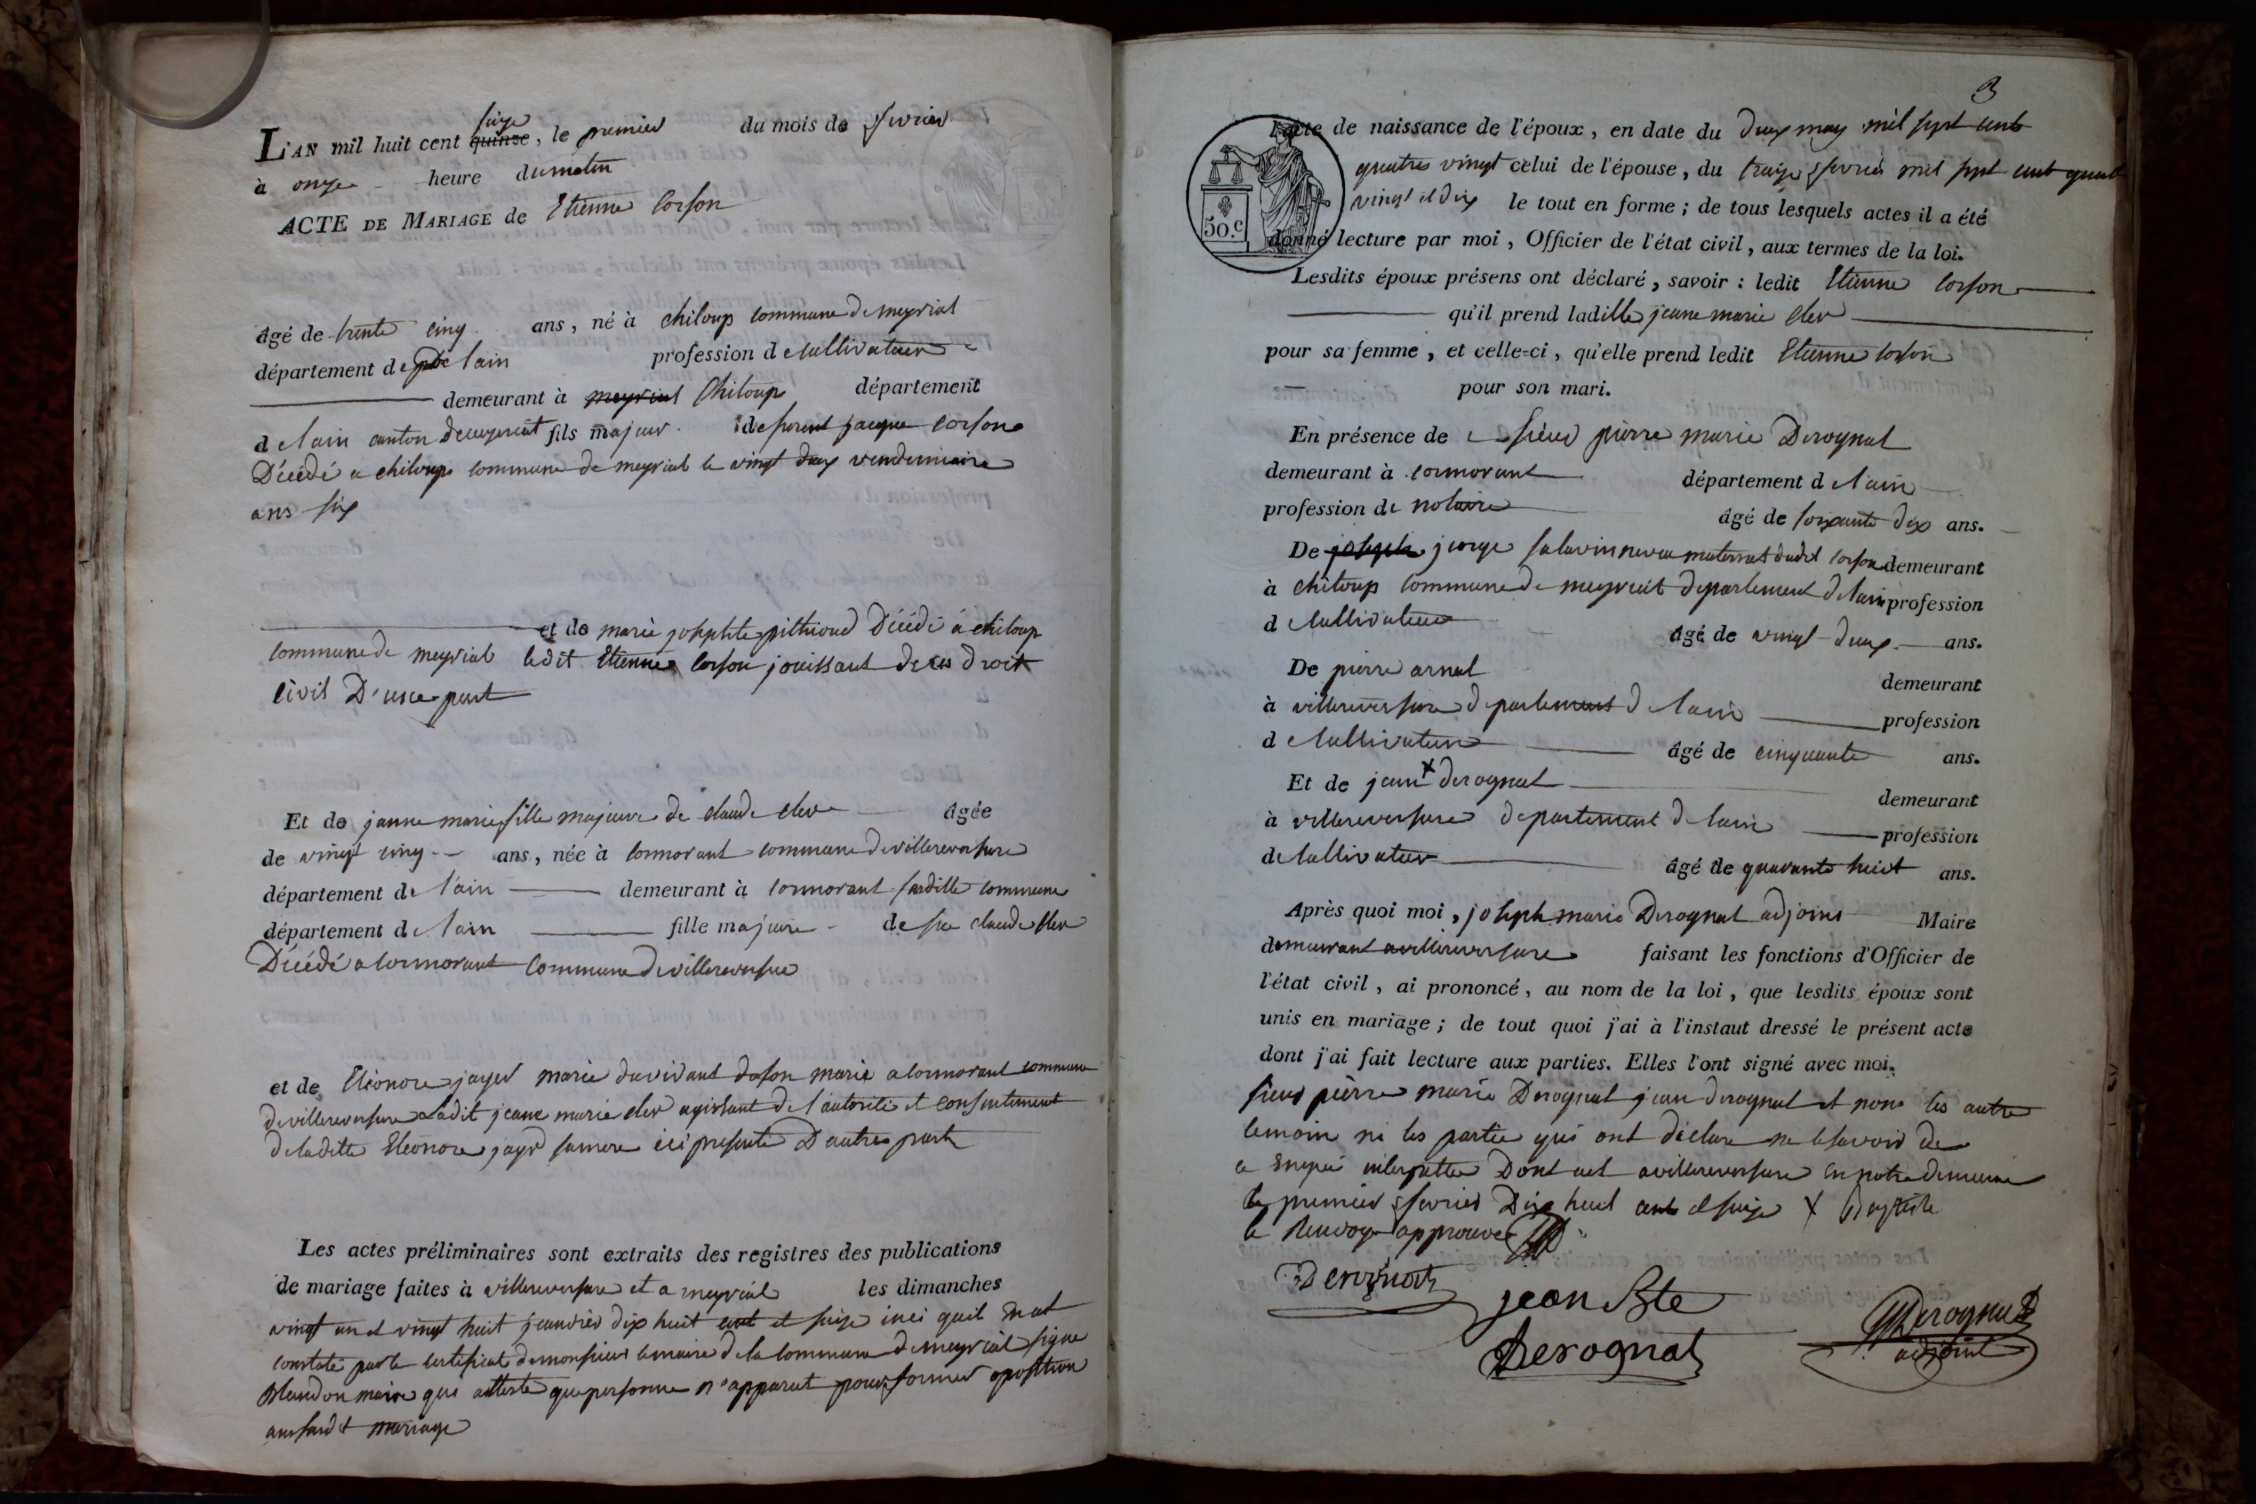 L'AN mil huit cent quinze seize, le premier du mois de fevrier
à onze heure du matin
ACTE DE MARIAGE de Etienne Corson
âgé de trente cinq ans, né à chiloup commune de meyriat
département de lain profession de Cultivateur
demeurant à meyriat Chiloup département
de lain canton de ceyzeriat fils majeur de jacque Corson
Décédé a chiloup commune de meyriat le vingt deux vendemiaire
ans six
et de marie josephte pithioud Décédé à chiloup
commune de meyriat ledit Etienne Corson jouissant de ces droit
civil D'une part
Et de janne marie fille majeure de claude cler âgée
de vingt cinq ans, née à Cormorant commune de villereversure
département de l'ain demeurant à Cormorant susditte commune
département de lain fille majeure de feu claude cler
Décédé a Cormorant Commune de villereversure
et de Eléonore jayr marie du vivant de son marie a Cormorant commune
de villereversure Ladit jeanne marie cler agissant de l'autorité et consentement
de laditte Eléonore jayr sa mere ici presente D'autre part
Les actes préliminaires sont extraits des registres des publications
de mariage faites à villereversure et a meyriat les dimanches
vingt un et vingt huit janvier dix huit cent et seize inci quil en est
constaté par le certificat de monsieur le maire de la commune de meyriat signe
Blandon maire qui atteste que personne n'apparut pour former oposition
au susdit mariage
3
50.c
l'acte de naissance de l'époux, en date du deux may mil sept cent
quatre vingt celui de l'épouse, du treize fevrier mil sept cent quatre
vingt et dix le tout en forme; de tous lesquels actes il a été
donné lecture par moi, Officier de l'état civil, aux termes de la loi.
Lesdits époux présens ont déclaré, savoir: ledit Etienne Corson
qu'il prend laditte jeanne marie cler
pour sa femme, et celle-ci, qu'elle prend ledit Etienne Corson
pour son mari.
En présence de sieur pierre marie Derognat
demeurant à Cormorant département de l'ain
profession de notaire âgé de soixante dix ans.
De joseph jorge salavin neveu maternel dudit Corson demeurant
à chiloup commune de meyriat departement de lain profession
de Cultivateur âgé de vingt deux ans.
De pierre arnal demeurant
à villereversure departement de lain profession
de Cultivateur âgé de cinquante ans.
Et de jean x derognat demeurant
à villereversure departement de lain profession
de Cultivateur âgé de quarante huit ans.
Après quoi moi, joseph marie Derognat adjoint Maire
demeurant a villereversure faisant les fonctions d'Officier de
l'état civil, ai prononcé, au nom de la loi, que lesdits époux sont
unis en mariage; de tout quoi j'ai à l'instant dressé le présent acte
dont j'ai fait lecture aux parties. Elles l'ont signé avec moi.
sieur pierre marie Derognat jean derognat et non les autre
temoin ni les partie qui ont déclare ne le savoir de
ce enquis interpelle Dont act a villereversure en notre demeure
le premier fevrier Dix huit cent et seize x Baptiste
le Renvoy approuvé
Derognat
jean Bte
Derognat
Derognat
adjoint